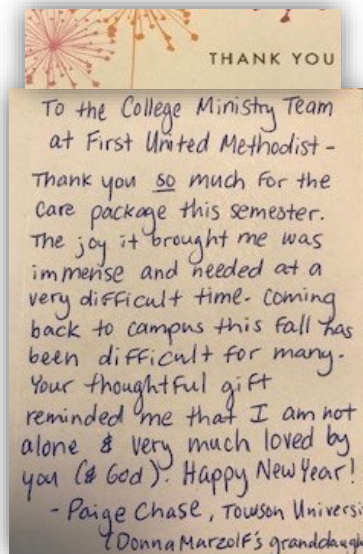 THANK YOU
To the College Ministry Team
at First United Methodist -
Thank you so much for the
care package this semester.
The joy it brought me was
immense and needed at a
very difficult time. Coming
back to campus this fall has
been difficult for many.
Your thoughtful gift
reminded me that I am not
alone & very much loved by
you (& God). Happy New Year!
- Paige Chase, Towson Universi
(Donna Marzolf's granddaugh